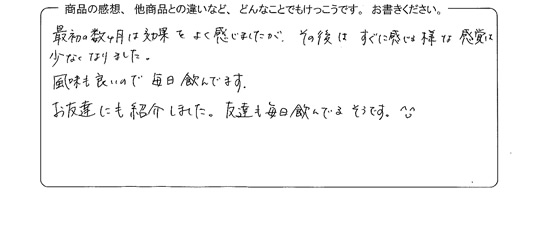 商品の感想、他商品との違いなど、どんなことでもけっこうです。お書きください。
最初の数ヶ月は効果をよく感じましたが、その後はすぐに感じる様な感覚は
少なくなりました。
風味も良いので毎日飲んでます。
お友達にも紹介しました。友達も毎日飲んでるそうです。^^